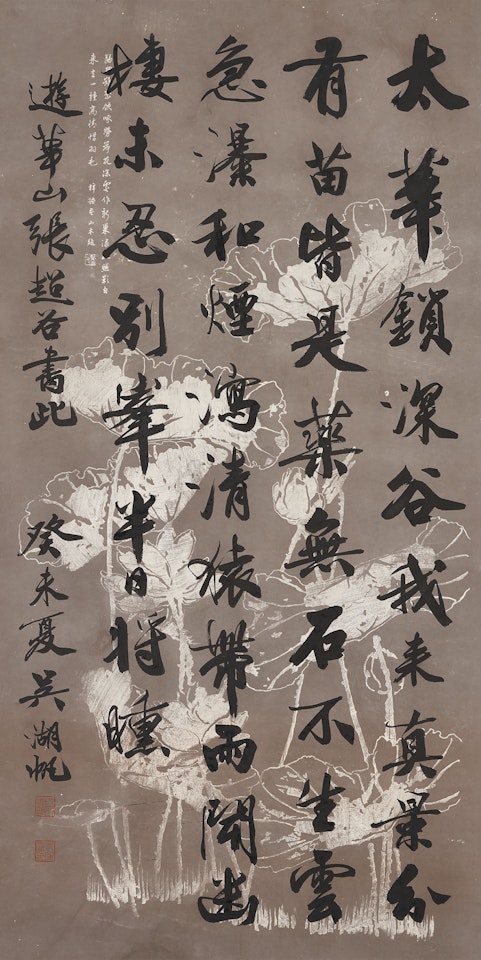 太華鎖深谷我来真景分
有苗皆是藥無石不生雲
急瀑和煙瀉清猿帶雨聞幽
棲未忍別峯半日将曛
遊華山張超谷書此 癸未夏吳湖帆